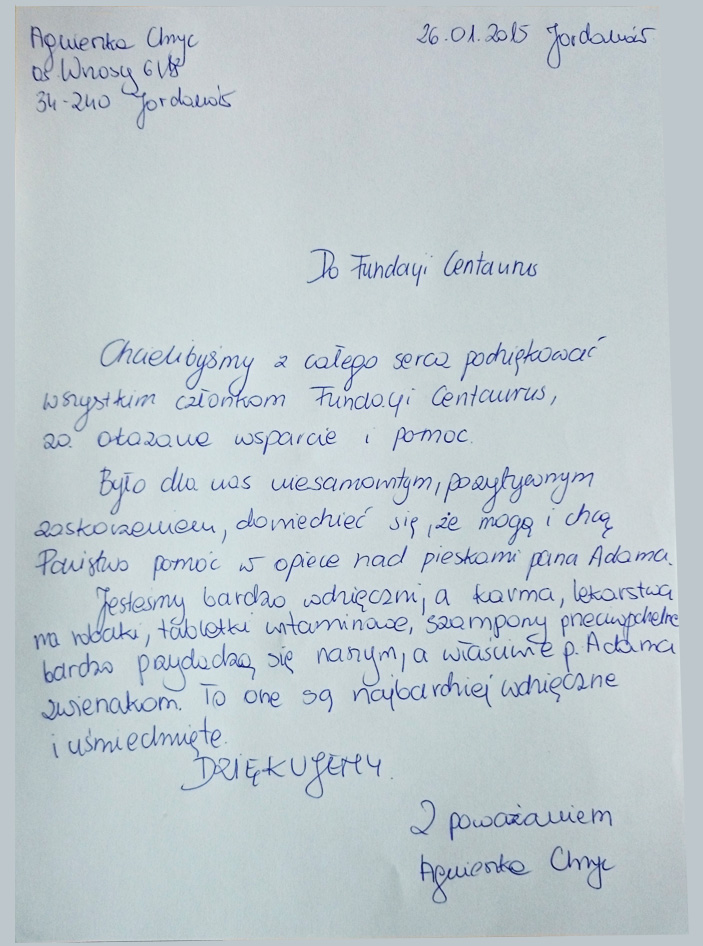 Agnieszka Chryc
os. Wrzosy 6
34-240 Jordanów
26.01.2015 Jordanów
Do Fundacji Centaurus
Chcielibyśmy z całego serca podziękować
wszystkim członkom Fundacji Centaurus,
za okazane wsparcie i pomoc.
Było dla nas niesamowitym, pozytywnym
zaskoczeniem, dowiedzieć się, że mogą i chcą
Państwo pomóc w opiece nad pieskami pana Adama.
Jesteśmy bardzo wdzięczni, a karma, lekarstwa
na robaki, tabletki witaminowe, szampony przeciwpchelne
bardzo przydadzą się naszym, a właściwie p. Adama
zwierzakom. To one są najbardziej wdzięczne
i uśmiechnięte.
DZIĘKUJEMY.
Z poważaniem
Agnieszka Chryc